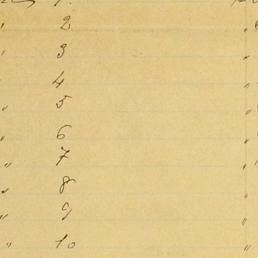 1.
2
3
4
5
" 6
" 7
" 8
" 9
" 10 "